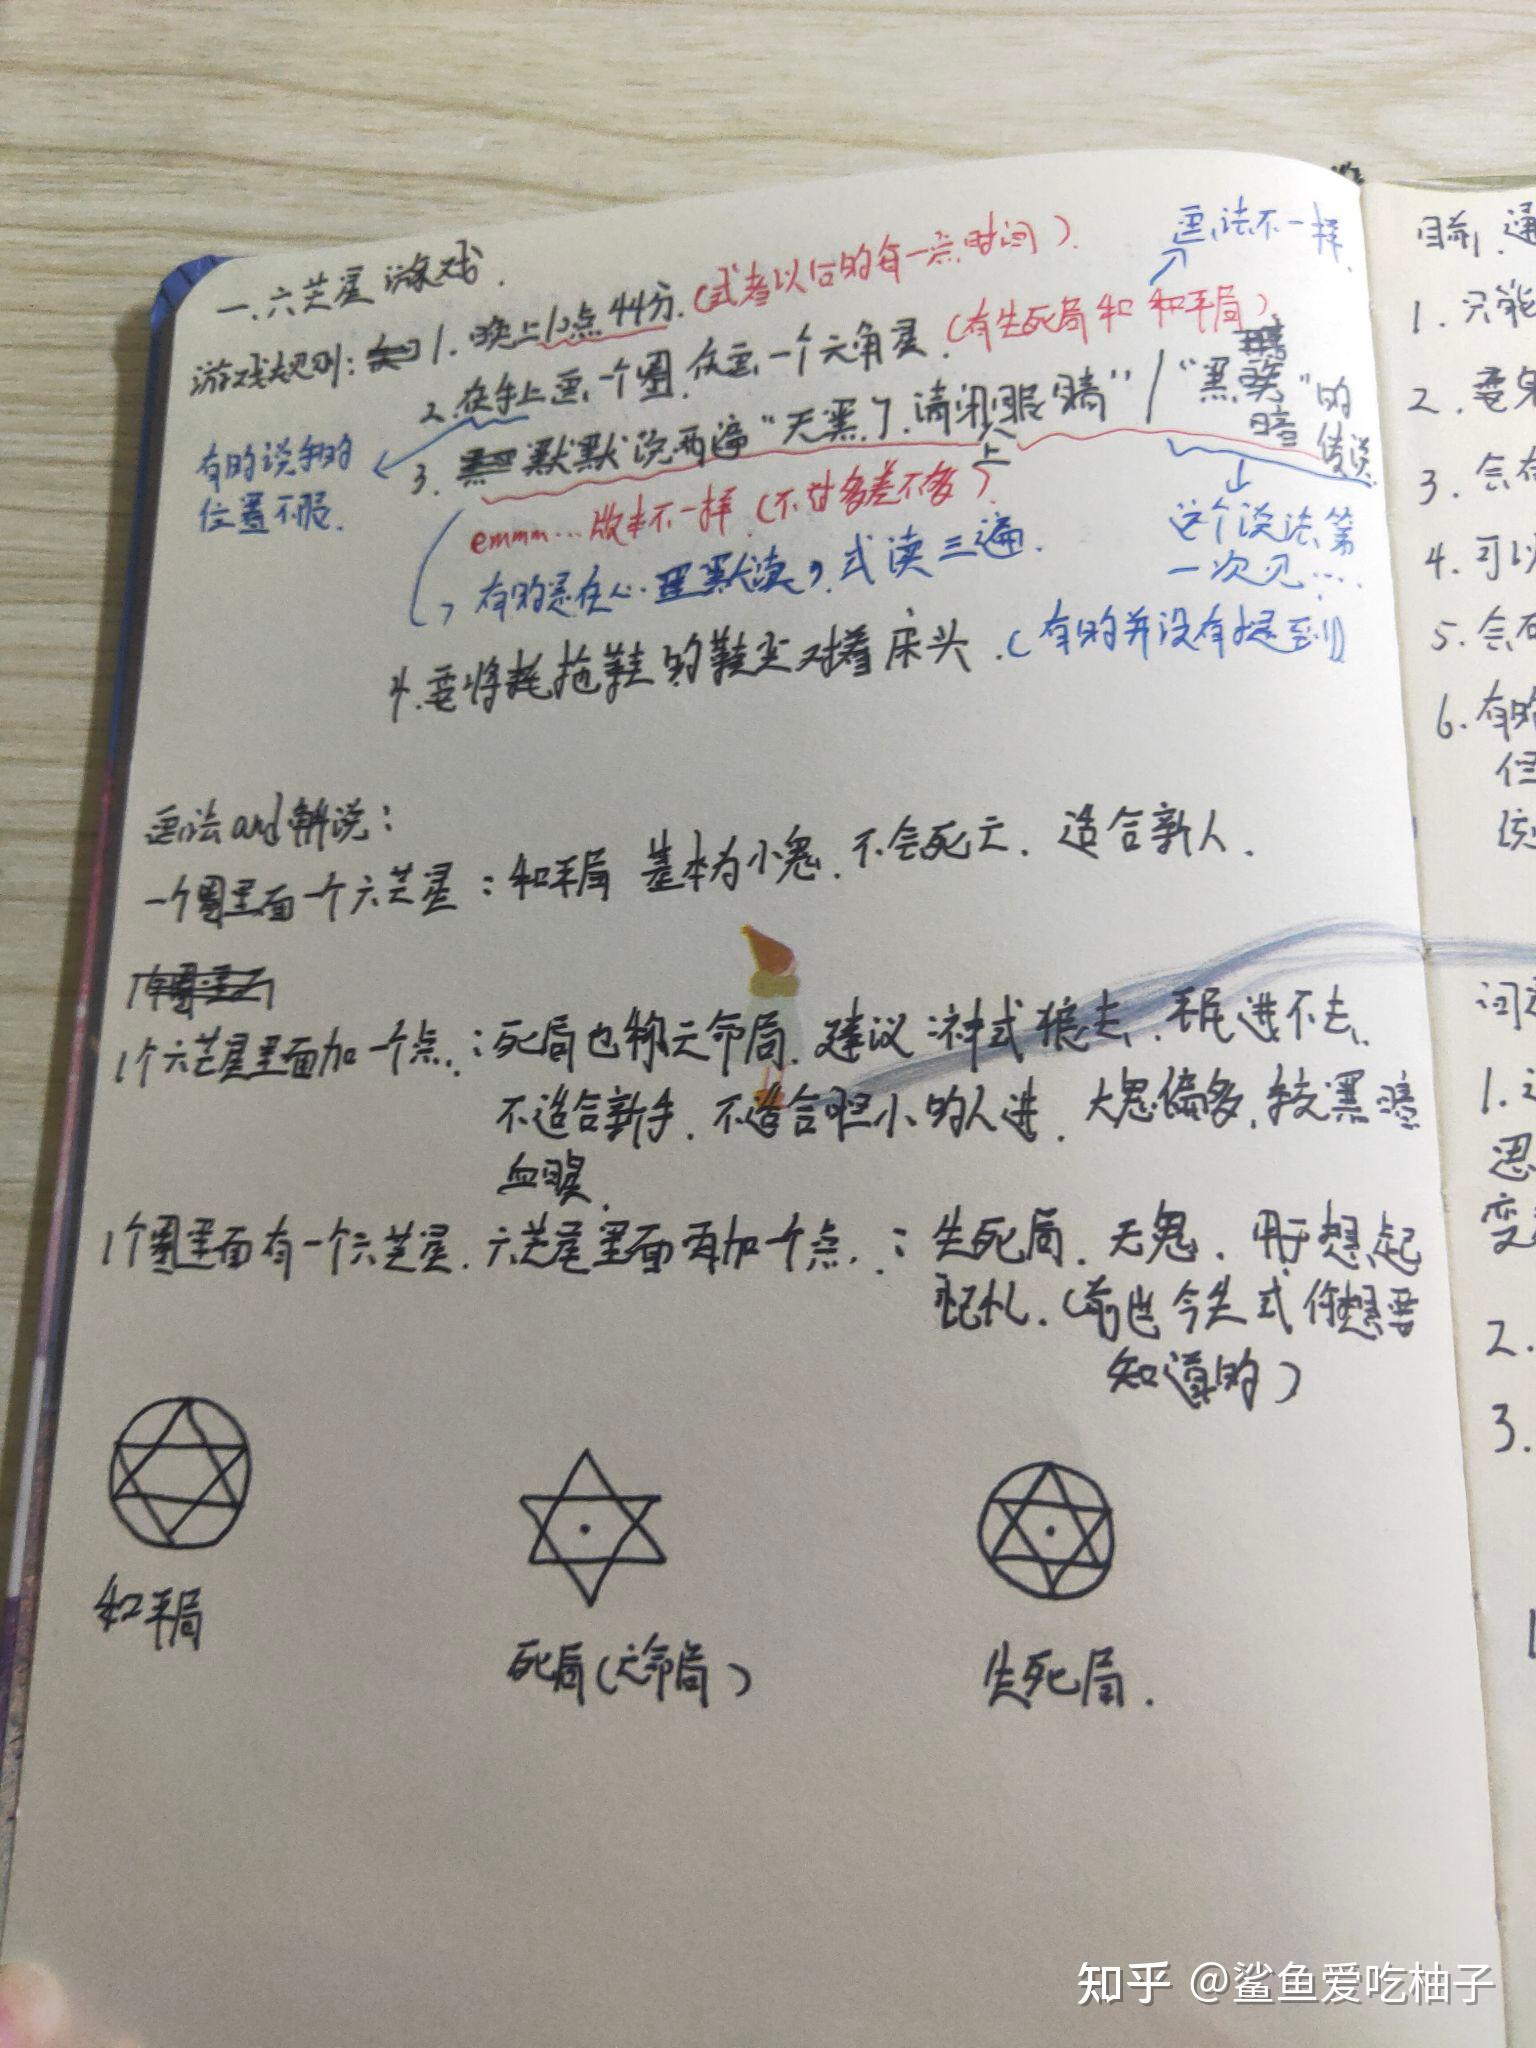 一、六芒星游戏.
游戏规则: 1. 晚上12点44分.(或者以后的每一点时间).
2. 在手上画一个圈.在画一个六角星.(有生死局和和平局)
画法不一样.
3. 默默说两遍“天黑了.请闭上眼睛”/“黑暗”的传说
有的说手的
位置不限.
emmm…版本不一样(不过都差不多).
这个说法第
一次见…
有的是在心里默读,或读三遍.
4.要将拖鞋的鞋尖对着床头.(有的并没有提到)
画法and解说:
一个圈里面一个六芒星:和平局 基本为小鬼.不会死亡.适合新人.
1个六芒星里面加一个点.:死局也称亡命局.建议神或狼去.平民进不去.
不适合新手.不适合胆小的人进.大鬼偏多,较黑暗
血腥.
1个圈里面有一个六芒星.六芒星里面再加一个点.:生死局.无鬼.用于想起
记忆.(前世今生或你想要
知道的)
和平局
死局(亡命局)
生死局.
目前,通
1.只能
2.
3.会
4.可以
5.会
6.有的
但
1.
2.
3.
知乎 @鲨鱼爱吃柚子